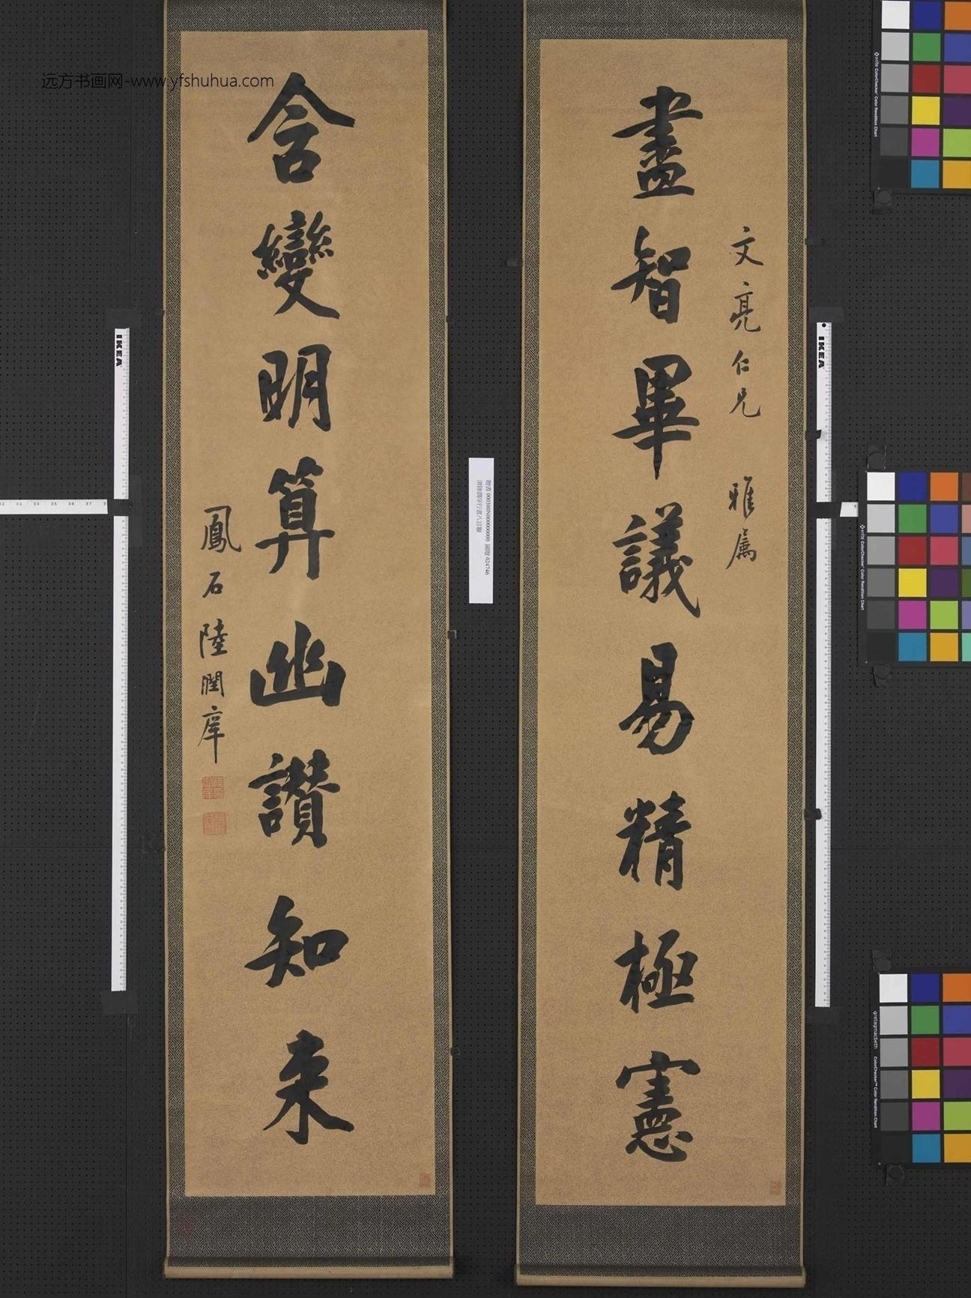 远方书画网-www.yfshuhua.com
文亮仁兄 雅属
盡智畢議易精極憲
含變明算幽讚知来
鳳石陸潤庠
IKEA
IKEA